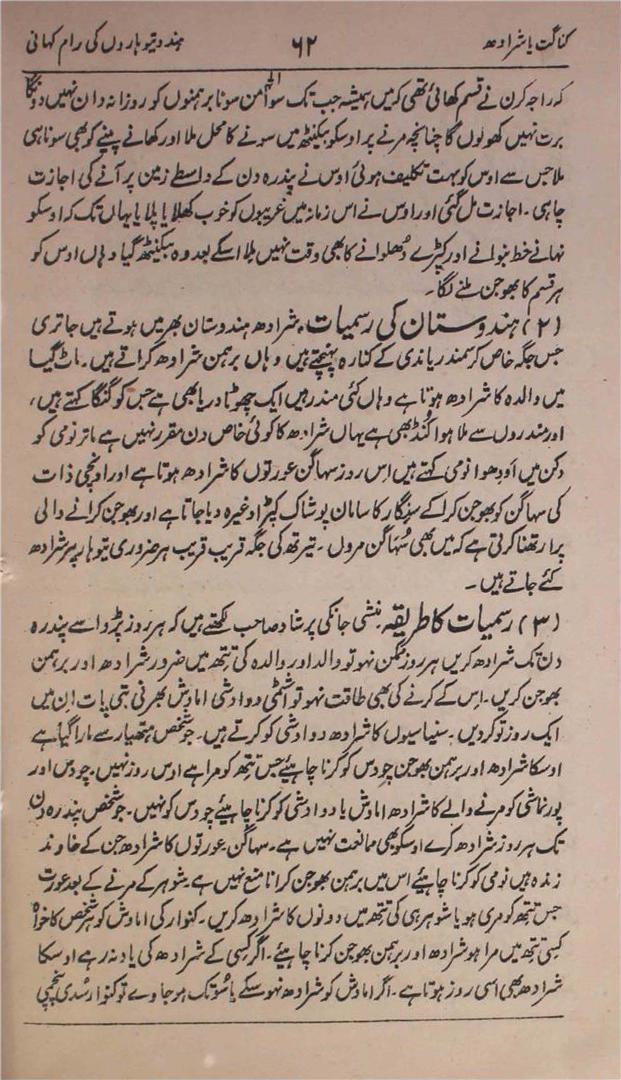 کناگت یا شرادھ ۶۲ ہندو تیوہاروں کی رام کہانی
کہ راجہ کرن نے قسم کھائی تھی کہ میں ہمیشہ جب تک سوا من سونا برہمنوں کو روزانہ دان نہیں دونگا
برت نہیں کھولوں گا چنانچہ مرنے پر اوسکو بیکنٹھ میں سونے کا محل ملا اور کھانے پینے کو بھی سونا ہی
ملا جس سے اوس کو بہت تکلیف ہوئی اوس نے پندرہ دن کے واسطے زمین پر آنے کی اجازت
چاہی۔ اجازت مل گئی اور اوس نے اس زمانہ میں غریبوں کو خوب کھلایا پلایا یہاں تک کہ اوسکو
نہانے خط بنوانے اور کپڑے دھلوانے کا بھی وقت نہیں ملا اسکے بعد وہ بیکنٹھ گیا وہاں اوس کو
ہر قسم کا بھوجن ملنے لگا۔
(۲) ہندوستان کی رسمیات، شرادھ ہندوستان بھر میں ہوتے ہیں جاتری
جس جگہ خاص کر سمندر یا ندی کے کنارہ پہنچتے ہیں وہاں برہمن شرادھ کراتے ہیں۔ ماٹ گیا
میں والدہ کا شرادھ ہوتا ہے وہاں کئی مندر ہیں ایک چھوٹا دریا بھی ہے جس کو گنگا کہتے ہیں،
اور مندروں سے ملا ہوا کُنڈ بھی ہے یہاں شرادھ کا کوئی خاص دن مقرر نہیں ہے ماتر نومی کو
دکن میں اَودھوا نومی کہتے ہیں اس روز سہاگن عورتوں کا شرادھ ہوتا ہے اور اونچی ذات
کی سہاگن کو بھوجن کرا کے سنگار کا سامان پوشاک کپڑا وغیرہ دیا جاتا ہے اور بھوجن کرانے والی
پرارتھنا کرتی ہے کہ میں بھی سُہاگن مروں۔ تیرتھ کی جگہ قریب قریب ہر ضروری تیوہار پر شرادھ
کئے جاتے ہیں۔
(۳) رسمیات کا طریقہ منشی جانکی پرشاد صاحب لکھتے ہیں کہ ہر روز پڑوا سے پندرہ
دن تک شرادھ کریں ہر روز ممکن نہو تو والد اور والدہ کی تتھ میں ضرور شرادھ اور برہمن
بھوجن کریں۔ اِس کے کرنے کی بھی طاقت نہو تو اشٹمی دوادشی امادش بھرنی تبی پات اِن میں
ایک روز تو کر دیں۔ سنیاسیوں کا شرادھ دوادشی کو کرتے ہیں۔ جو شخص ہتھیار سے مارا گیا ہے
اوسکا شرادھ اور برہمن بھوجن چودس کو کرنا چاہیئے جس تتھ کو مرا ہے اوس روز نہیں۔ چودس اور
پورنماشی کو مرنے والے کا شرادھ امادش یا دوادشی کو کرنا چاہیئے چودس کو نہیں۔ جو شخص پندرہ دن
تک ہر روز شرادھ کرے اوسکو بھی ممانعت نہیں ہے۔ سہاگن عورتوں کا شرادھ جن کے خاوند
زندہ ہیں نومی کو کرنا چاہیئے اس میں برہمن بھوجن کرانا منع نہیں ہے۔ شوہر کے مرنے کے بعد عورت
جس تتھ کو مری ہو یا شوہر ہی کی تتھ میں دونوں کا شرادھ کریں۔ کنوار کی امادش کو ہر شخص کا خواہ
کسی تتھ میں مرا ہو شرادھ اور برہمن بھوجن کرنا چاہیئے۔ اگر کسی کے شرادھ کی یاد نہ رہے اوسکا
شرادھ بھی اسی روز ہوتا ہے۔ اگر امادش کو شرادھ نہو سکے یا سُوتک ہو جاوے تو کنوار سُدی پنچمی